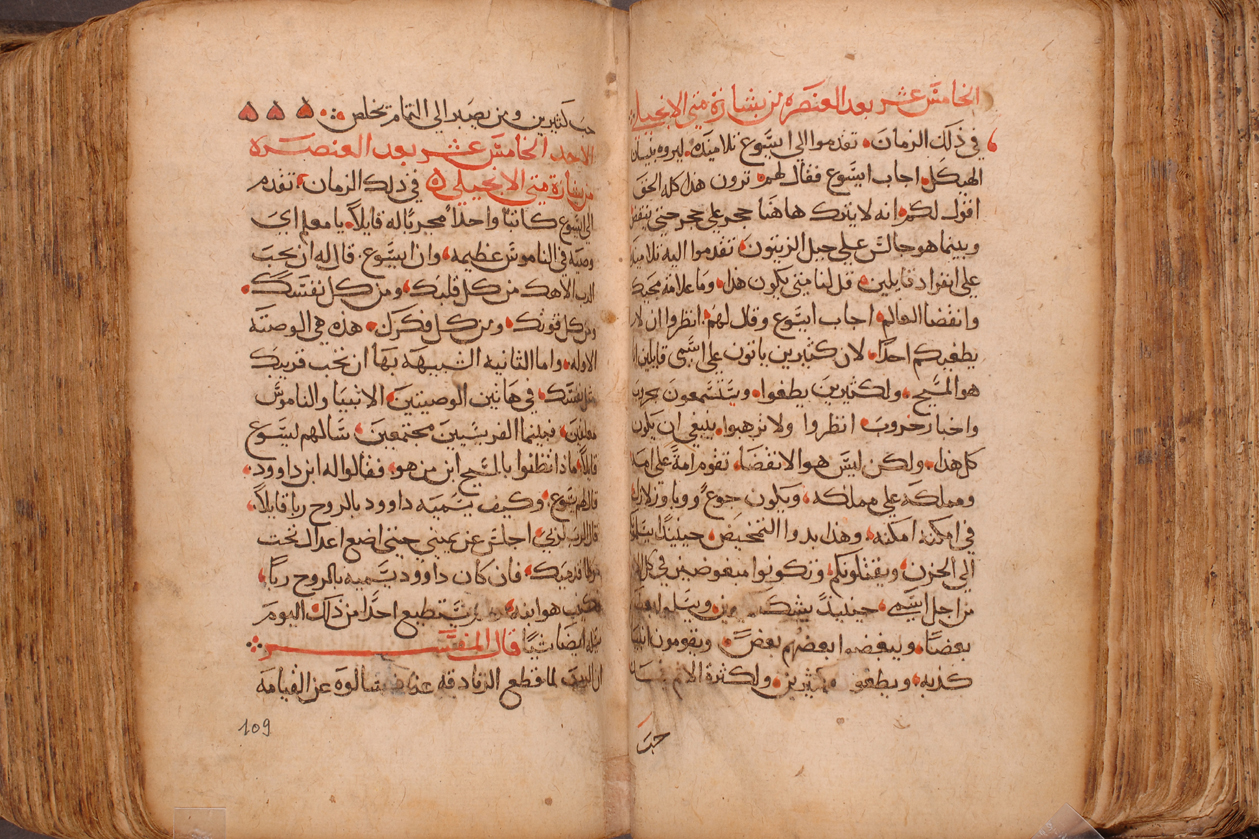 الخامس عشر بعد العنصره من بشارة متى الانجيلي
في ذلك الزمان تقدموا الى ايسوع تلاميذه ليروه بنيان
الهيكل اجاب ايسوع فقال لهم ترون هذا كله الحق
اقول لكم انه لا يترك هاهنا حجر على حجر حتى ينقض
وبينما هو جالس على جبل الزيتون تقدموا اليه تلاميذه
على انفراد قايلين قل لنا متى يكون هذا وما علامة مجيك
وانقضا العالم اجاب ايسوع وقال لهم انظروا ان لا
يطغيكم احدا لان كثيرين ياتون على اسمى قايلين انا
هو المسيح ولكثيرين يطغوا وستسمعون بحروب
واخبار حروب انظروا ولا ترهبوا ينبغي ان يكون
كل هذا ولكن ليس هو الانقضا تقوم امة على امة
ومملكه على مملكه ويكون جوع ووبا وزلازل
في امكنه امكنه وهذا بدوا التمخيض حينيدا
الى الحزن ويقتلونكم وتكونوا مبغوضين في كل
من اجل اسمي حينيدا يشك ويسلم
بعضا ويبغضوا بعضهم بعض ويقومون انبيا
كذبه ويطغو كثيرين ولكثرة الاثم
حب
حب كثيرين ومن يصبر الى التمام يخلص
الاحد الخامس عشر بعد العنصرة
من بشارة متى الانجيلي في ذلك الزمان تقدم
الى ايسوع كاتبا واحدا مجربا له قايلا يا معلم اي
وصية في الناموس عظيمه وان ايسوع قال له ان تحب
الرب الاهك من كل قلبك ومن كل نفسك
ومن كل قوتك ومن كل فكرك هذه هي الوصية
الاوله واما الثانيه الشبيهة بها ان تحب قريبك
مثل نفسك في هاتين الوصيتين الانبيا والناموس
معلقين فبينما الفريسيين مجتمعين سالهم ايسوع
قايلا ماذا تظنوا بالمسيح ابن من هو فقالوا له ابن داوود
قال لهم يسوع وكيف يسميه داوود بالروح ربا قايلا
قال الرب لربي اجلس عن يميني حتى اضع اعداك تحت
قدميك فان كان داوود يسميه بالروح ربا
فكيف هو ابنه يستطيع احدا من ذلك اليوم
ايضا شيا قال المفسر
ان السيد لما قطع الزنادقه سالوه عن القيامة
109